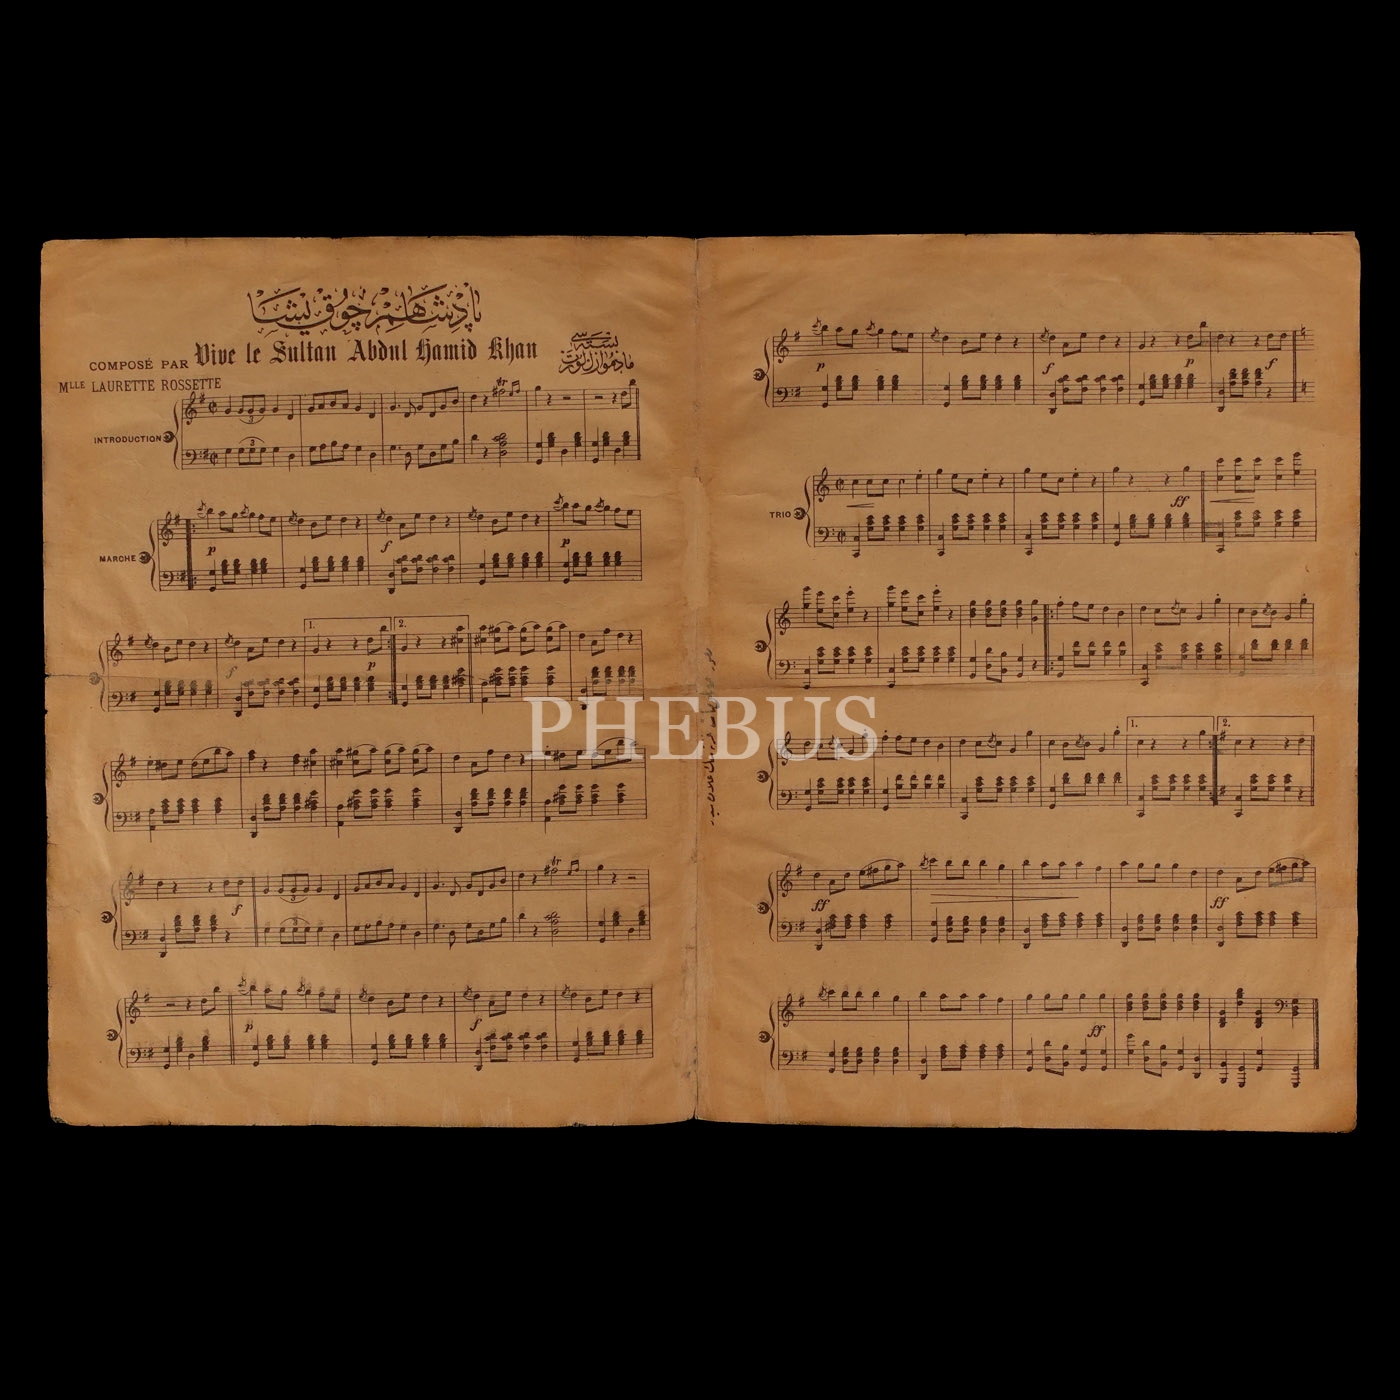 پادشاهم چوق یشا
Vive le Sultan Abdul Hamid Khan
بسته سی
COMPOSÉ PAR
MLLE LAURETTE ROSSETTE
INTRODUCTION
3
3
p
MARCHE
p
f
p
f
1.
p
2.
f
3
3
p
f
p
f
p
f
TRIO
ff
1.
2.
ff
ff
ff
PHEBUS